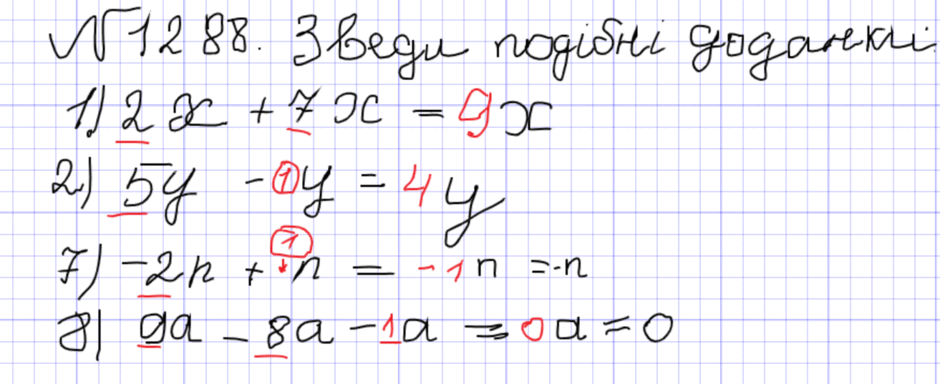 №1288. Зведи подібні доданки:
1) 2x + 7x = 9x
2) 5y - 1y = 4y
7) -2n + 1n = -1n = -n
8) 9a - 8a - 1a = 0a = 0